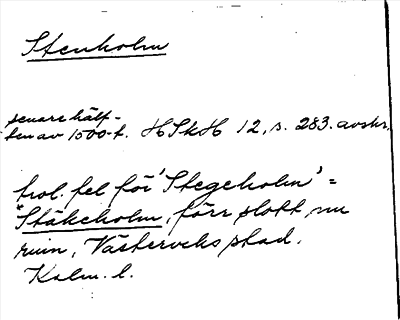 Stenholm
senare hälf-
ten av 1500-t. HSkH 12, s. 283. avskr.
trol. fel för 'Stegeholm' =
Stäkeholm, förr slott, nu
ruin, Västerviks stad,
Kalm. l.